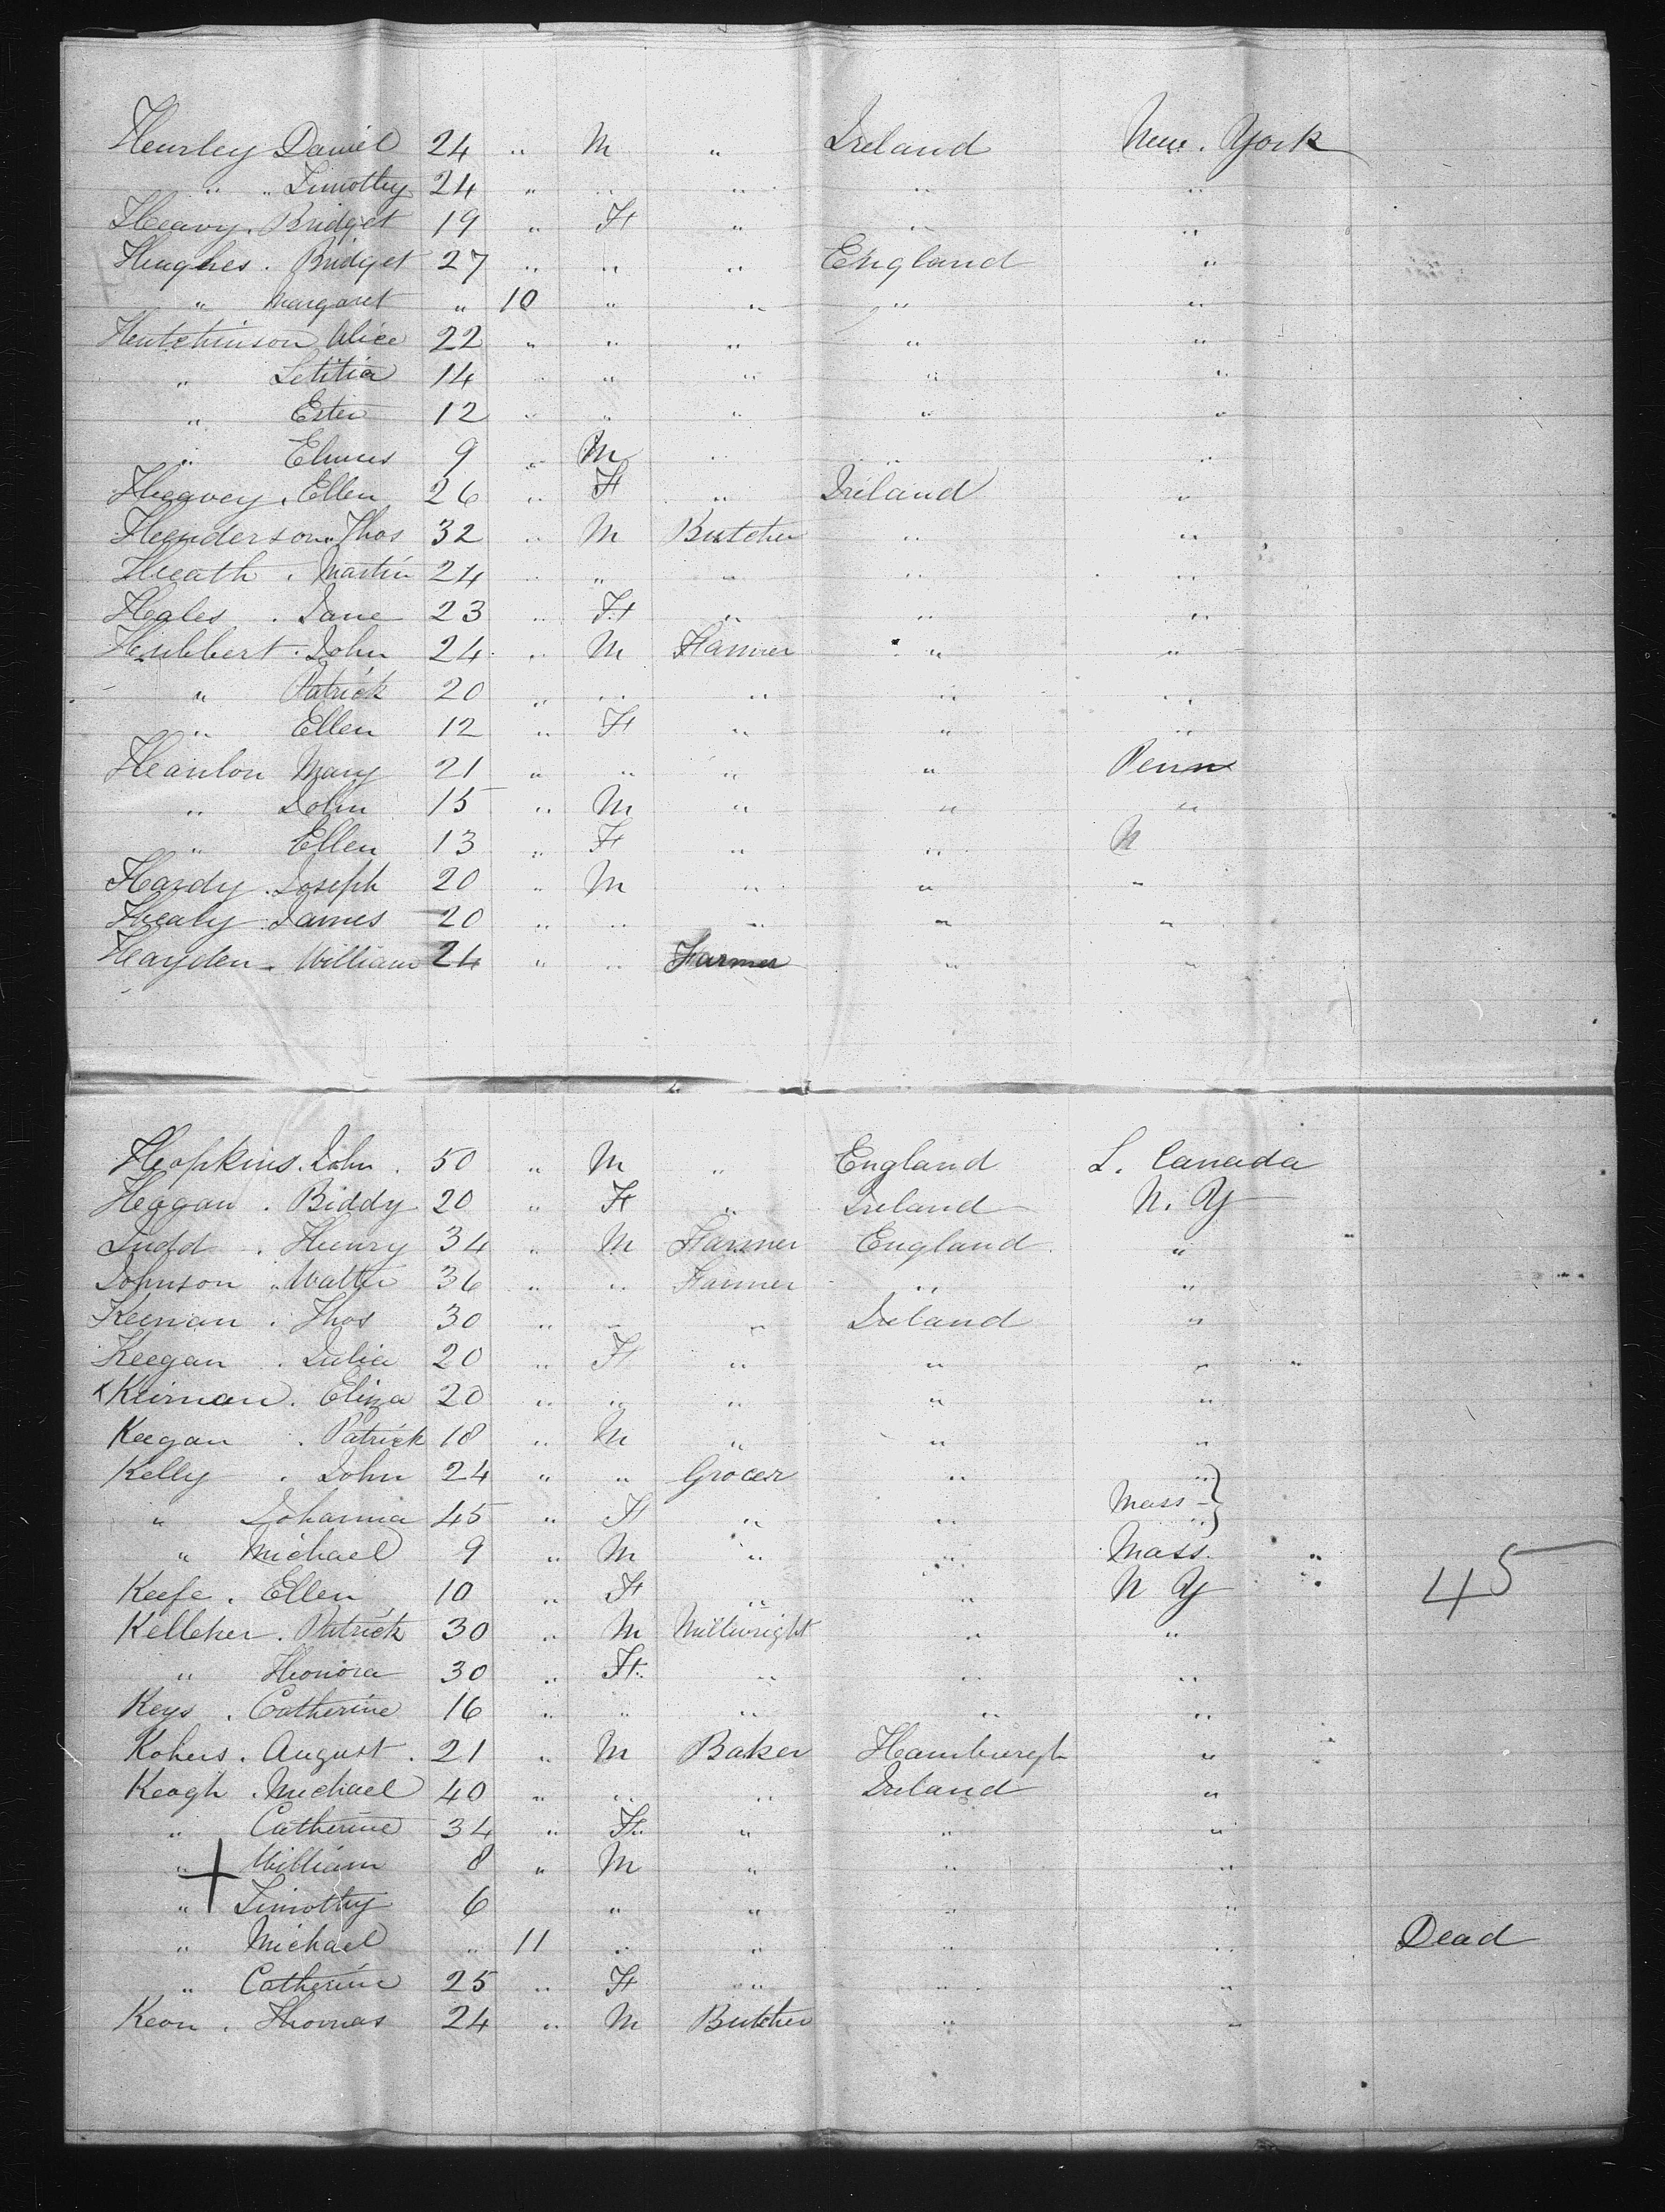 Hurley Daniel 24 " M " Ireland New York
" " Timothy 24 " " " " "
Heavy. Bridget 19 " F " " "
Hughes. Bridget 27 " " " England "
" Margaret " 10 " " " "
Hutchinson Alice 22 " " " " "
" Letitia 14 " " " " "
" Ester 12 " " " " "
" 9 " M " " "
Heavey. Ellen 26 " F " Ireland "
Henderson. Thos 32 " M Butcher " "
Heath. Martin 24 " " " " "
Hales. Jane 23 " F " " "
Hubbert. John 24 " M Farmer " "
" Patrick 20 " " " " "
" Ellen 12 " F " " "
Hanlon Mary 21 " " " " Penn
" John 15 " M " " "
" Ellen 13 " F " " N
Hardy. Joseph 20 " M " " "
Healy James 20 " " " " "
Hayden. William 24 " " Farmer " "
Hopkins. John. 50 " M " England L. Canada
Hagan. Biddy 20 " F " Ireland N. Y
Judd. Henry 34 " M Farmer England "
Johnson. Walter 36 " " Farmer " "
Keenan. Thos 30 " " " Ireland "
Keegan. Julia 20 " F " " "
x Kiernan. Eliza 20 " " " " "
Keegan. Patrick 18 " M " " "
Kelly. John 24 " " Grocer " "
" Johanna 45 " F " " Mass "
" Michael 9 " M " " Mass.
Keefe. Ellen 10 " F " " N Y 45
Kelleher. Patrick 30 " M Millwright " "
" Honora 30 " F " " "
Keys. Catherine 16 " " " " "
Kohers. August. 21 " M Baker Hamburgh "
Keogh. Michael 40 " " " Ireland "
" Catherine 34 " F " " "
" William 8 " M " " "
" Timothy 6 " " " "
" Michael " 11 " " " " Dead
" Catherine 25 " F " " "
Keon. Thomas 24 " M Butcher " "